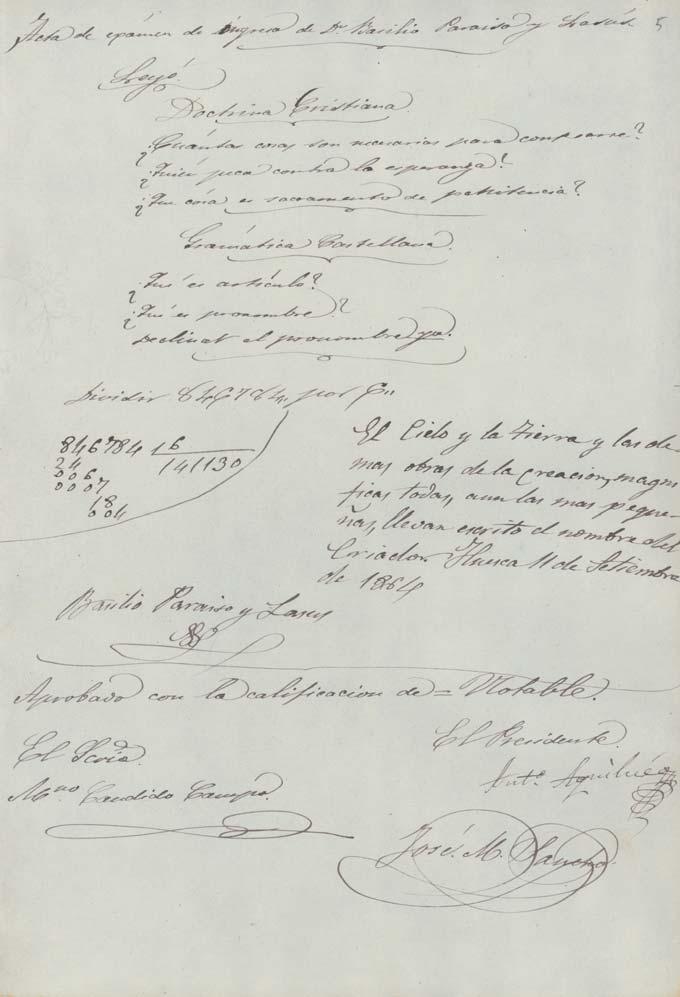 Acta de exámen de ingreso de Dn. Basilio Paraiso y Lasús. 5
Leyó.
Doctrina Cristiana.
¿Cuántas cosas son necesarias para confesarse?
¿Quién peca contra la esperanza?
¿Que cosa es sacramento de penitencia?
Gramática Castellana.
¿Qué es artículo?
¿Qué es pronombre?
Declinar el pronombre yo.
Dividir 846784 por 6
846784 6
24 141130
006
0007
18
004
El Cielo y la Tierra y las de-
mas obras de la creacion, magni
ficas todas, aun las mas peque-
ñas, llevan escrito el nombre del
Criador. Huesca 11 de Setiembre
de 1864
Basilio Paraiso y Lasus
Aprobado con la calificacion de = Notable.
El Presidente.
El Scrio.
Antº. Aquilué
Mno Candido Campo
José. M.